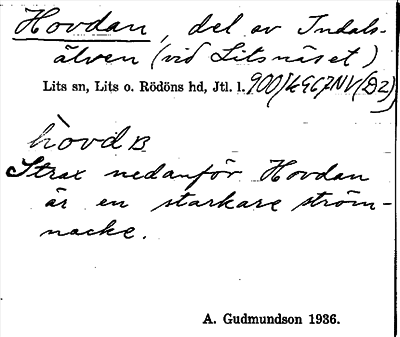 Hovdan, del av Indals-
älven (vid Litsnäset)
Lits sn, Lits o. Rödöns hd, Jtl. l.
hòvdɞ
Strax nedanför Hovdan
är en starkare ström-
nacke.
A. Gudmundson 1936.